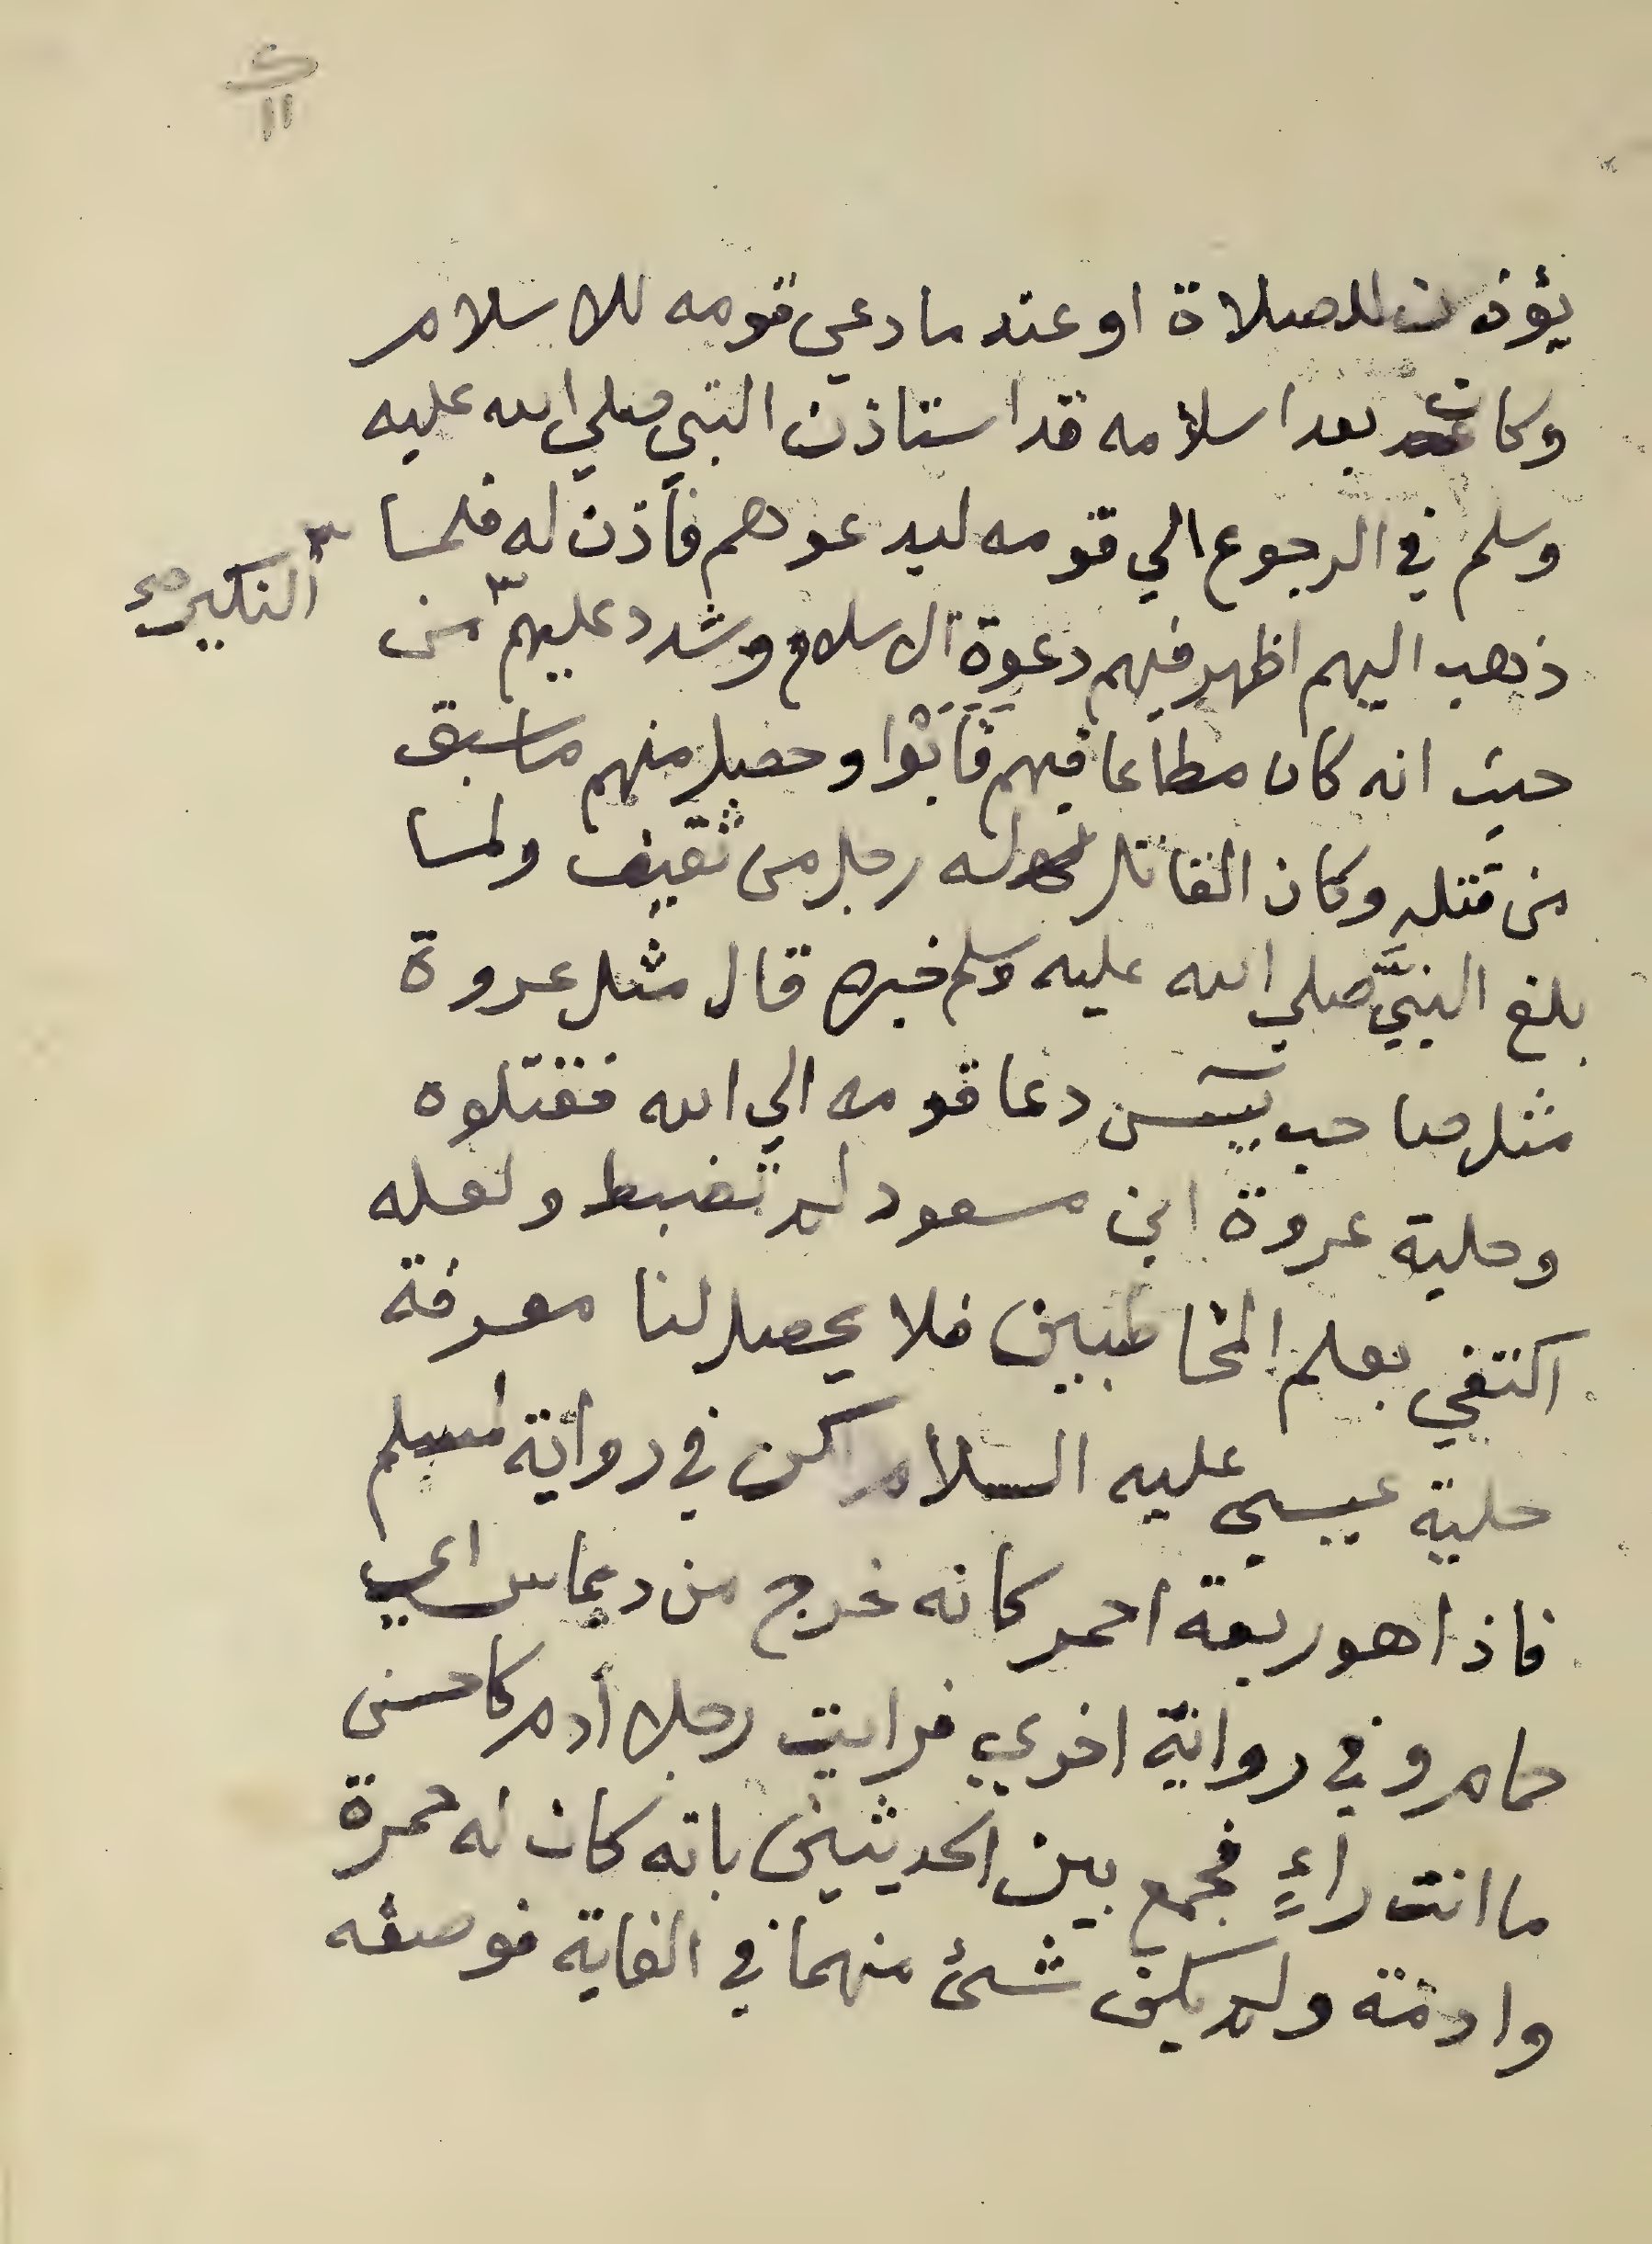 يؤذن للصلاة او عند ما دعي قومه للاسلام
وكان بعد اسلامه قد استاذن النبي صلي الله عليه
وسلم في الرجوع الي قومه ليدعوهم فأذن له فلما
ذهب اليهم اظهر فيهم دعوة الاسلام وشدد عليهم من
النكير صح
حيث انه كان مطاعا فيهم فَأَبَوْا وحصل منهم ما سبق
من قتله وكان القاتل له رجل من ثقيف ولما
بلغ النبيَّ صلي الله عليه وسلم خبره قال مثل عروة
مثل صاحب يٓسٓ دعا قومه الي الله فقتلوه
وحلية عروة ابن مسعود لم تضبط ولعله
اكتفي بعلم المخاطبين فلا يحصل لنا معرفة
حلية عيسي عليه السلام لكن في رواية لمسلم
فاذا هو ربعة احمر كانه خرج من ديماس اي
حمام وفي رواية اخري فرايت رجل أدم كاحسن
ما انت راءٍ فجمع بين الحديثين بانه كان له حمرة
وادمة ولم يكن شئ منهما في الغاية فوصفه